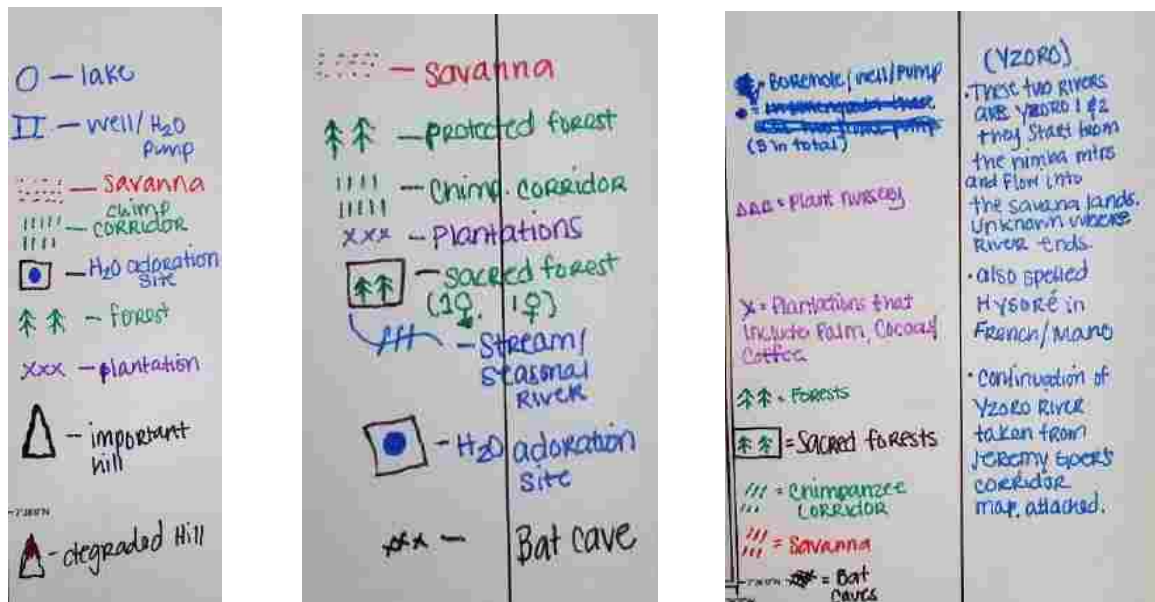 O – lake
II – well/H2O
pump
– Savanna
chimp
– CORRIDOR
– H2O adoration
site
– forest
xxx – plantation
– important
hill
– degraded Hill
– Savanna
– protected forest
– Chimp. CORRIDOR
xxx – Plantations
– Sacred forest
(1♀, 1♀)
– Stream/
seasonal
RIVER
– H2O adoration
site
xxx – Bat cave
= Borehole/well/pump
(3 in total)
ΔΔΔ = Plant nursery
x = Plantations that
include Palm, Cocoa/
Coffee
= Forests
= Sacred forests
= Chimpanzee
CORRIDOR
= Savanna
= Bat
caves
(YZORO)
• These two RIVERS
are YZORO 1 & 2
they start from
the nimba mtns
and flow into
the savana lands.
Unknown where
River ends.
• also spelled
Hysoré in
French/Mano
• Continuation of
YZORO River
taken from
Jeremy
corridor
map, attached.